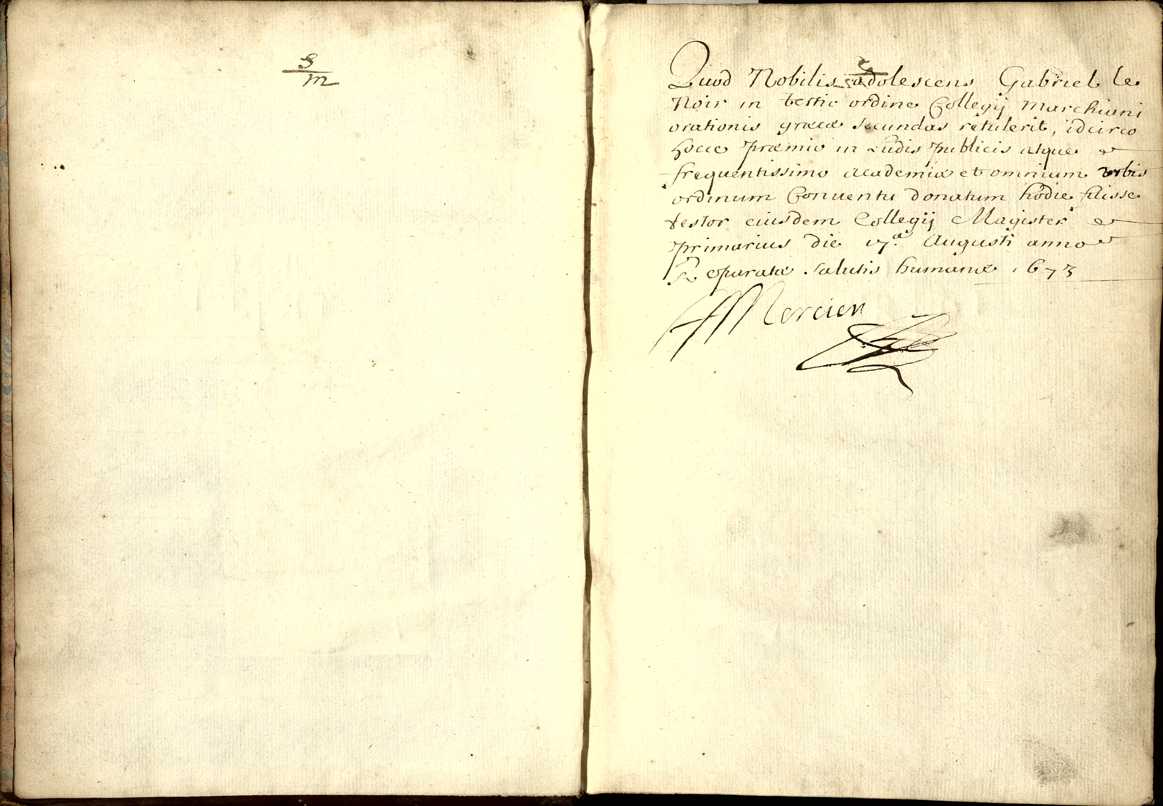 S
m
Quod Nobilis adolescens Gabriel le
Noir in tertio ordine Collegij Marchiani
orationis græcæ secundas retulerit, idcirco
hocce præmio in Ludis publicis atque
frequentissimo academiæ et omnium urbis
ordinum Conventu donatum hodie fuisse
testor eiusdem Collegij Magister et
Primarius die 17.a Augusti anno
Reparatæ salutis humanæ 1673
Mercier